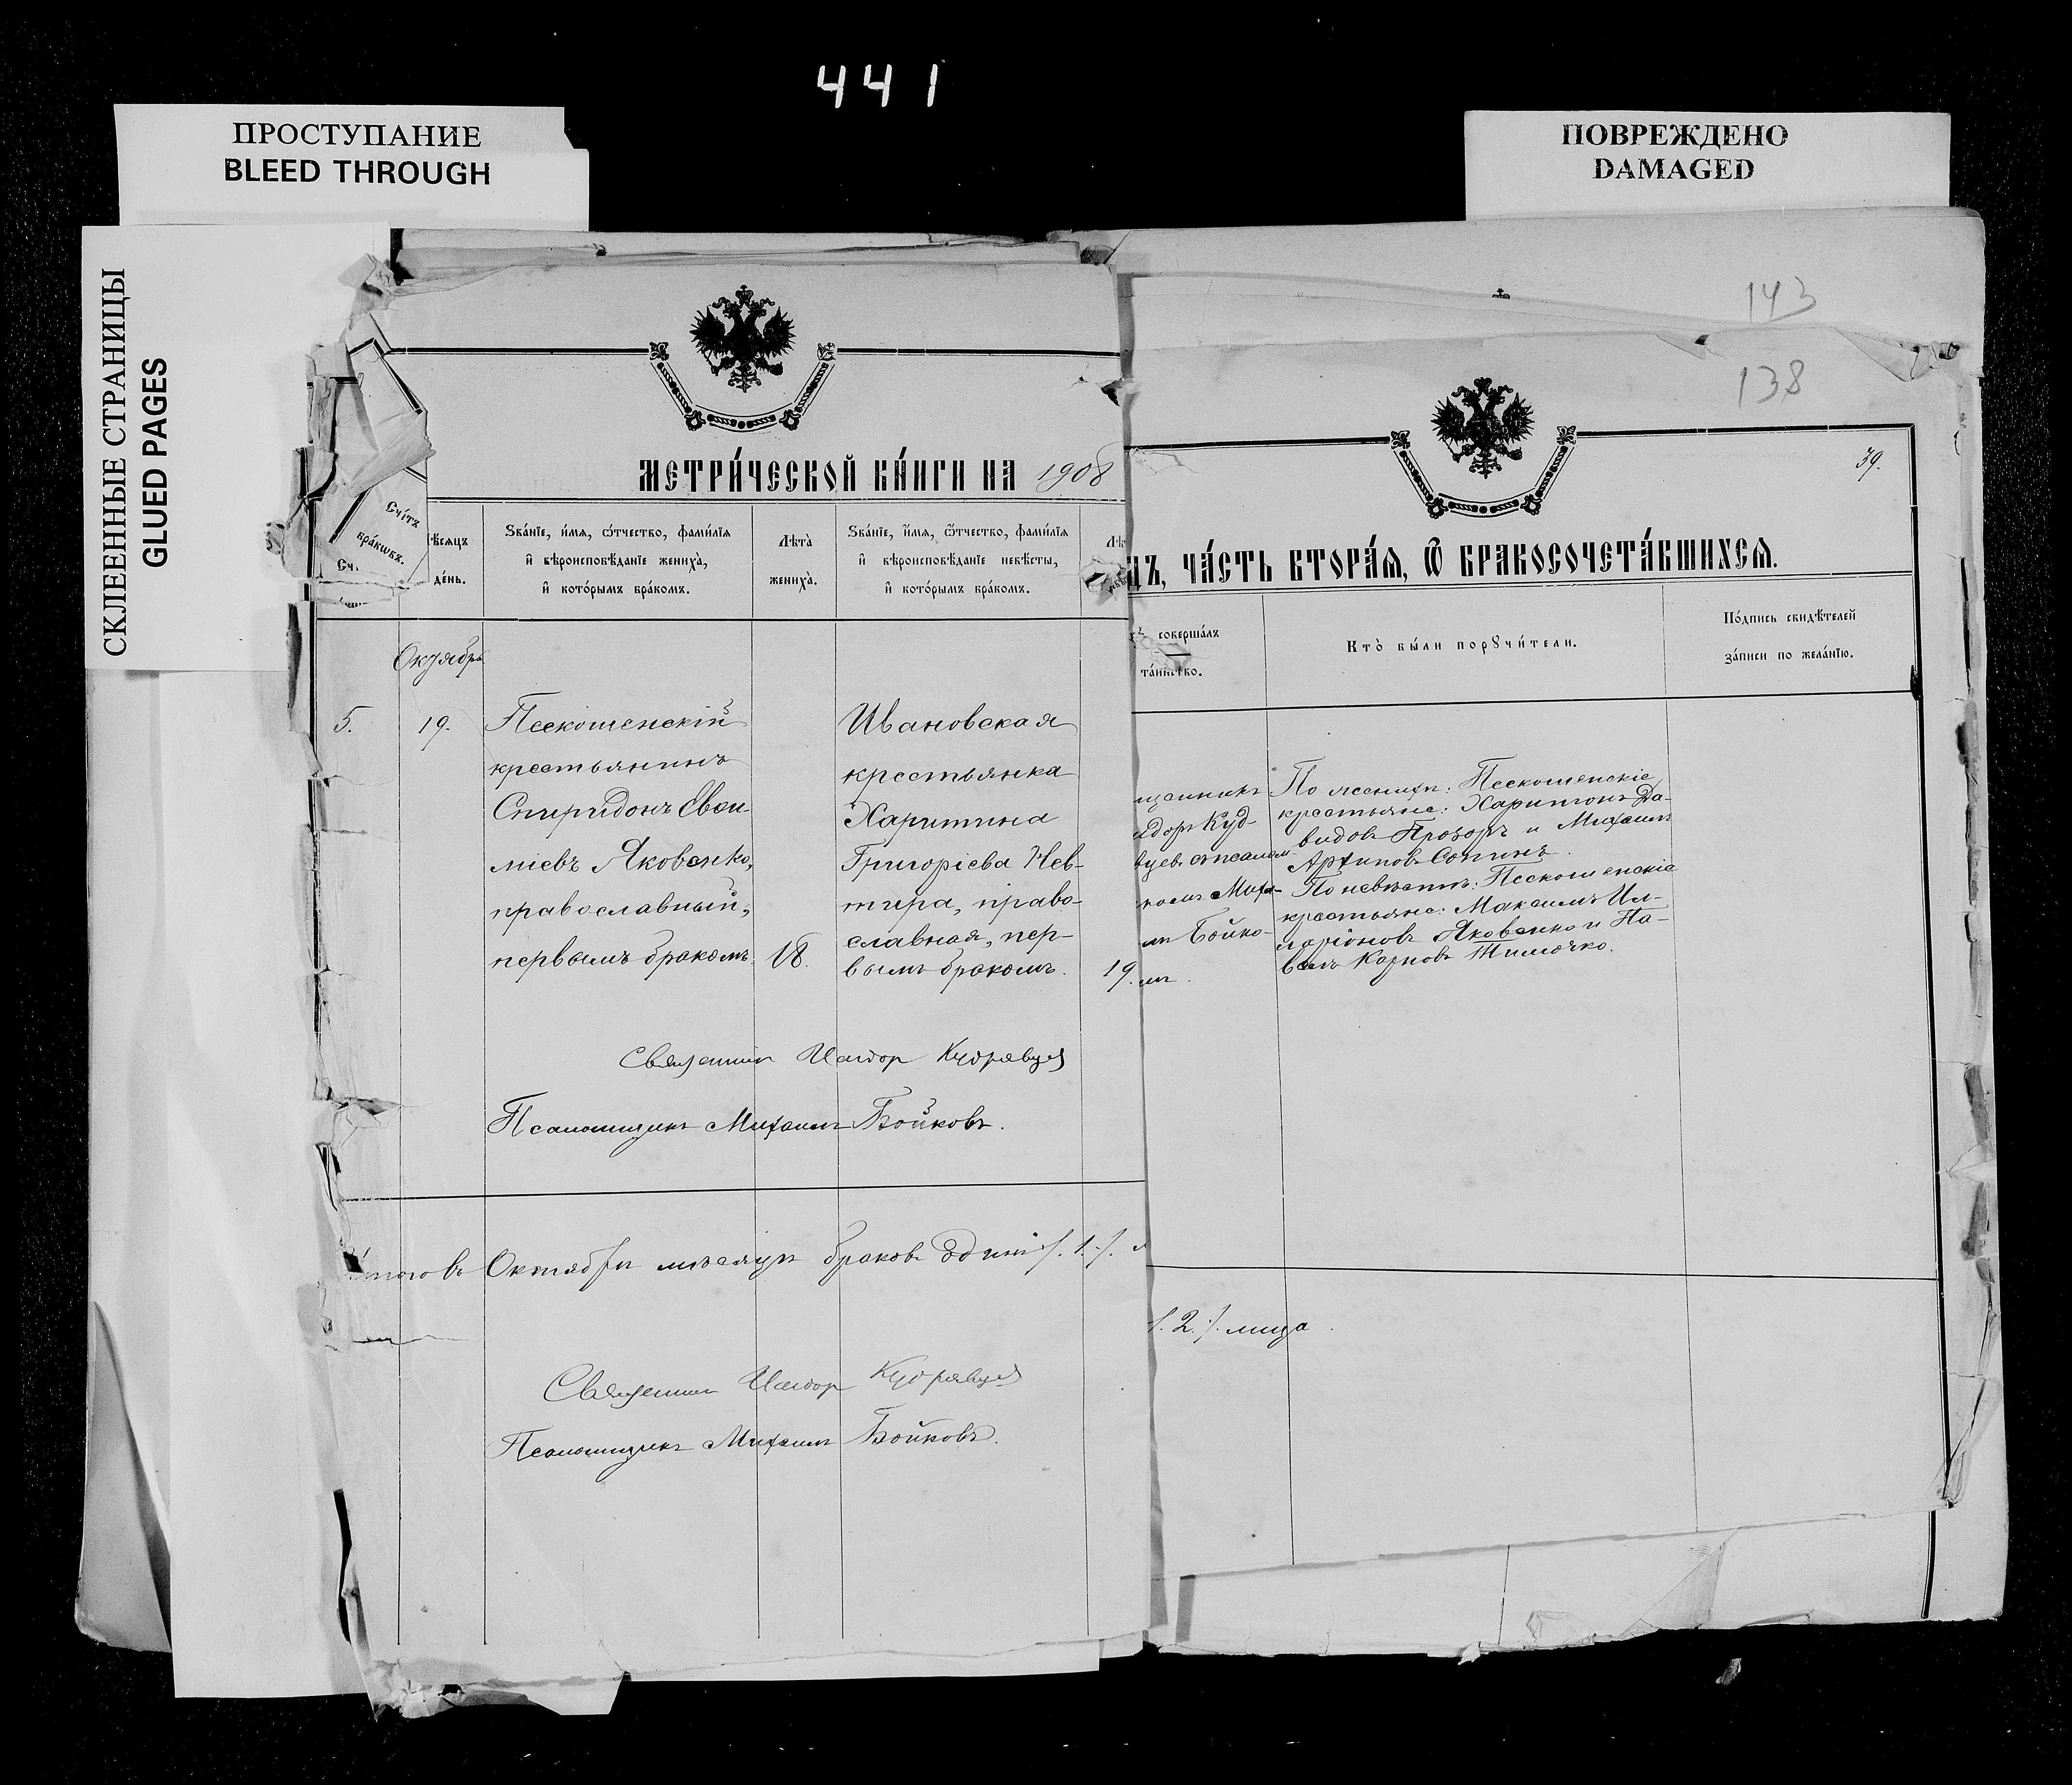 441
ПРОСТУПАНИЕ
BLEED THROUGH
ПОВРЕЖДЕНО
DAMAGED
СКЛЕЕННЫЕ СТРАНИЦЫ
GLUED PAGES
143
138
39.
МЕТРИ́ЧЕСКОЙ КНИ́ГИ НА 1908
ДЪ, ЧА́СТЬ ВТОРА́Я, Ѿ БРАКОСОЧЕТА́ВШИХСЯ.
Сче́тъ
бра́кѡвъ.
ѣсяцъ
де́нь.
Ѕва́нїе, и́мя, ѻ́тчество, фами́лїя
и҆ вѣроисповѣ́данїе жениха̀,
и҆ кото́рымъ бра́комъ.
Лѣта̀
жениха̀.
Ѕва́нїе, и́мя, ѻ́тчество, фами́лїя
и҆ вѣроисповѣ́данїе невѣ́сты,
и҆ кото́рымъ бра́комъ.
соверша́лъ
та́инство.
Кто̀ бы́ли порꙋчи́тели.
По́дпись свидѣ́телей
за́писи по жела́нїю.
Октябрь
5.
19.
Пескошенскій
крестьянинъ
Спиридонъ Евѳи-
міевъ Яковенко,
православный,
первымъ бракомъ.
18.
Ивановская
крестьянка
Харитина
Григоріева Нев-
тира, право-
славная, пер-
вымъ бракомъ.
19.
щенникъ
идоръ Куд-
вцевъ съ псалом-
комъ Миха-
мъ Бойко-
мъ.
По женихѣ: Пескошенскіе
крестьяне: Харитонъ Да-
видовъ Прозоръ и Михаилъ
Архиповъ Сопинъ.
По невѣстѣ: Пескошенскіе
крестьяне: Максимъ Ил-
ларіоновъ Яковенко и Па-
велъ Карповъ Тимочко.
Священникъ Исидоръ Кудрявцевъ
Псаломщикъ Михаилъ Бойковъ.
Итого въ Октябрѣ мѣсяцѣ браковъ одинъ /.1./.
/.2./. лица.
Священникъ Исидоръ Кудрявцевъ
Псаломщикъ Михаилъ Бойковъ.